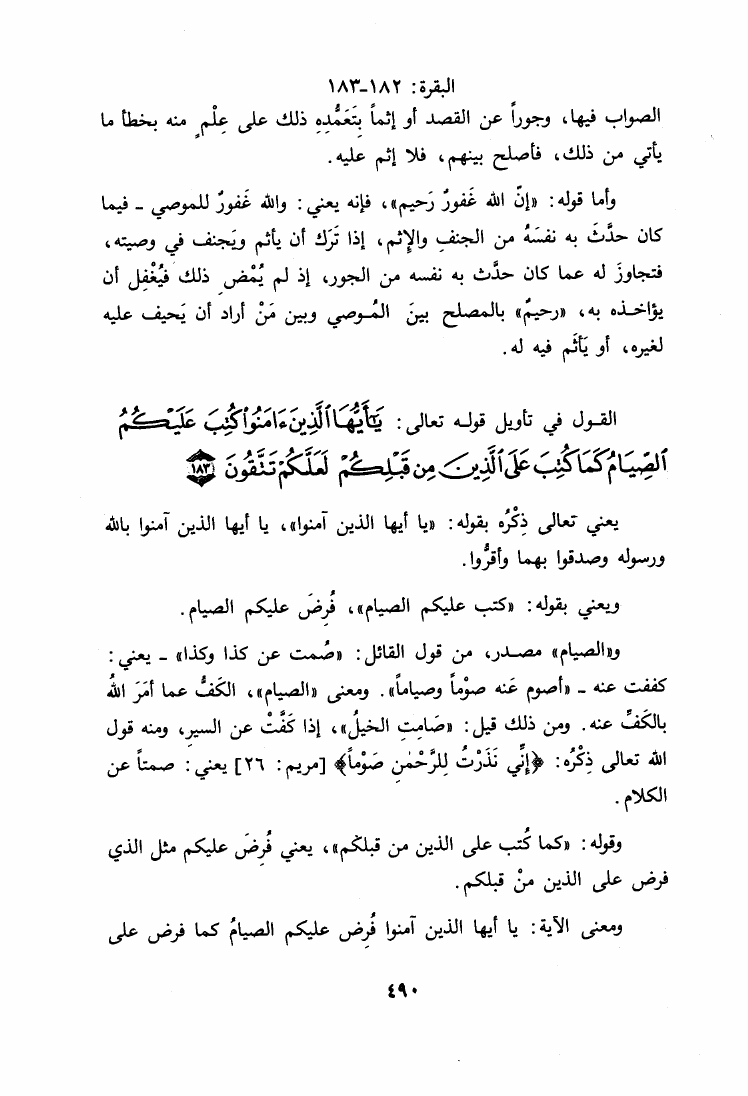 البقرة: ١٨٢-١٨٣
الصواب فيها، وجوراً عن القصد أو إثماً بِتَعَمُّدِهِ ذلك على عِلْمٍ منه بخطأ ما
يأتي من ذلك، فأصلح بينهم، فلا إثم عليه.
وأما قوله: «إنّ الله غَفورٌ رَحيم»، فإنه يعني: والله غَفورٌ للموصي - فيما
كان حدَّثَ به نفسَهُ من الجنفِ والإثم، إذا تَرَك أن يأثم ويَجنف في وصيته،
فتجاوزَ له عما كان حدَّث به نفسه من الجور، إذ لم يُمْضِ ذلك فيُغْفِل أن
يؤاخـذه به، «رحيمٌ» بالمصلح بينَ المُـوصي وبين مَنْ أراد أن يَحيف عليه
لغيره، أو يَأثَم فيه له.
القـول في تأويل قولـه تعالى: يَٰٓأَيُّهَا ٱلَّذِينَ ءَامَنُوا۟ كُتِبَ عَلَيْكُمُ
ٱلصِّيَامُ كَمَا كُتِبَ عَلَى ٱلَّذِينَ مِن قَبْلِكُمْ لَعَلَّكُمْ تَتَّقُونَ ١٨٣
يعني تعالى ذِكْرُه بقوله: «يا أيها الذين آمنوا»، يا أيها الذين آمنوا بالله
ورسوله وصدقوا بهما وأقرُّوا.
ويعني بقوله: «كتب عليكم الصيام»، فُرِضَ عليكم الصيام.
و«الصيام» مصـدر، من قول القائل: «صُمت عن كذا وكذا» - يعني:
كففت عنه - «أصوم عَنه صوْماً وصياماً». ومعنى «الصيام»، الكَفُّ عما أمَرَ اللهُ
بالكَفِّ عنه. ومن ذلك قيل: «صَامتِ الخيلُ»، إذا كَفَّتْ عن السيرِ، ومنه قول
الله تعالى ذِكْرُه: ﴿إنِّي نَذَرْتُ لِلرَّحْمٰنِ صَوْماً﴾ [مريم: ٢٦] يعني: صمتاً عن
الكلام.
وقوله: «كما كُتب على الذين من قبلكم»، يعني فُرِضَ عليكم مثل الذي
فرض على الذين منْ قبلكم.
ومعنى الآية: يا أيها الذين آمنوا فُرِض عليكم الصيامُ كما فرض على
٤٩٠